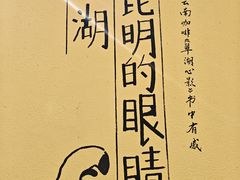 湖
昆明的眼睛
云南咖啡《翠湖心影》书中有感